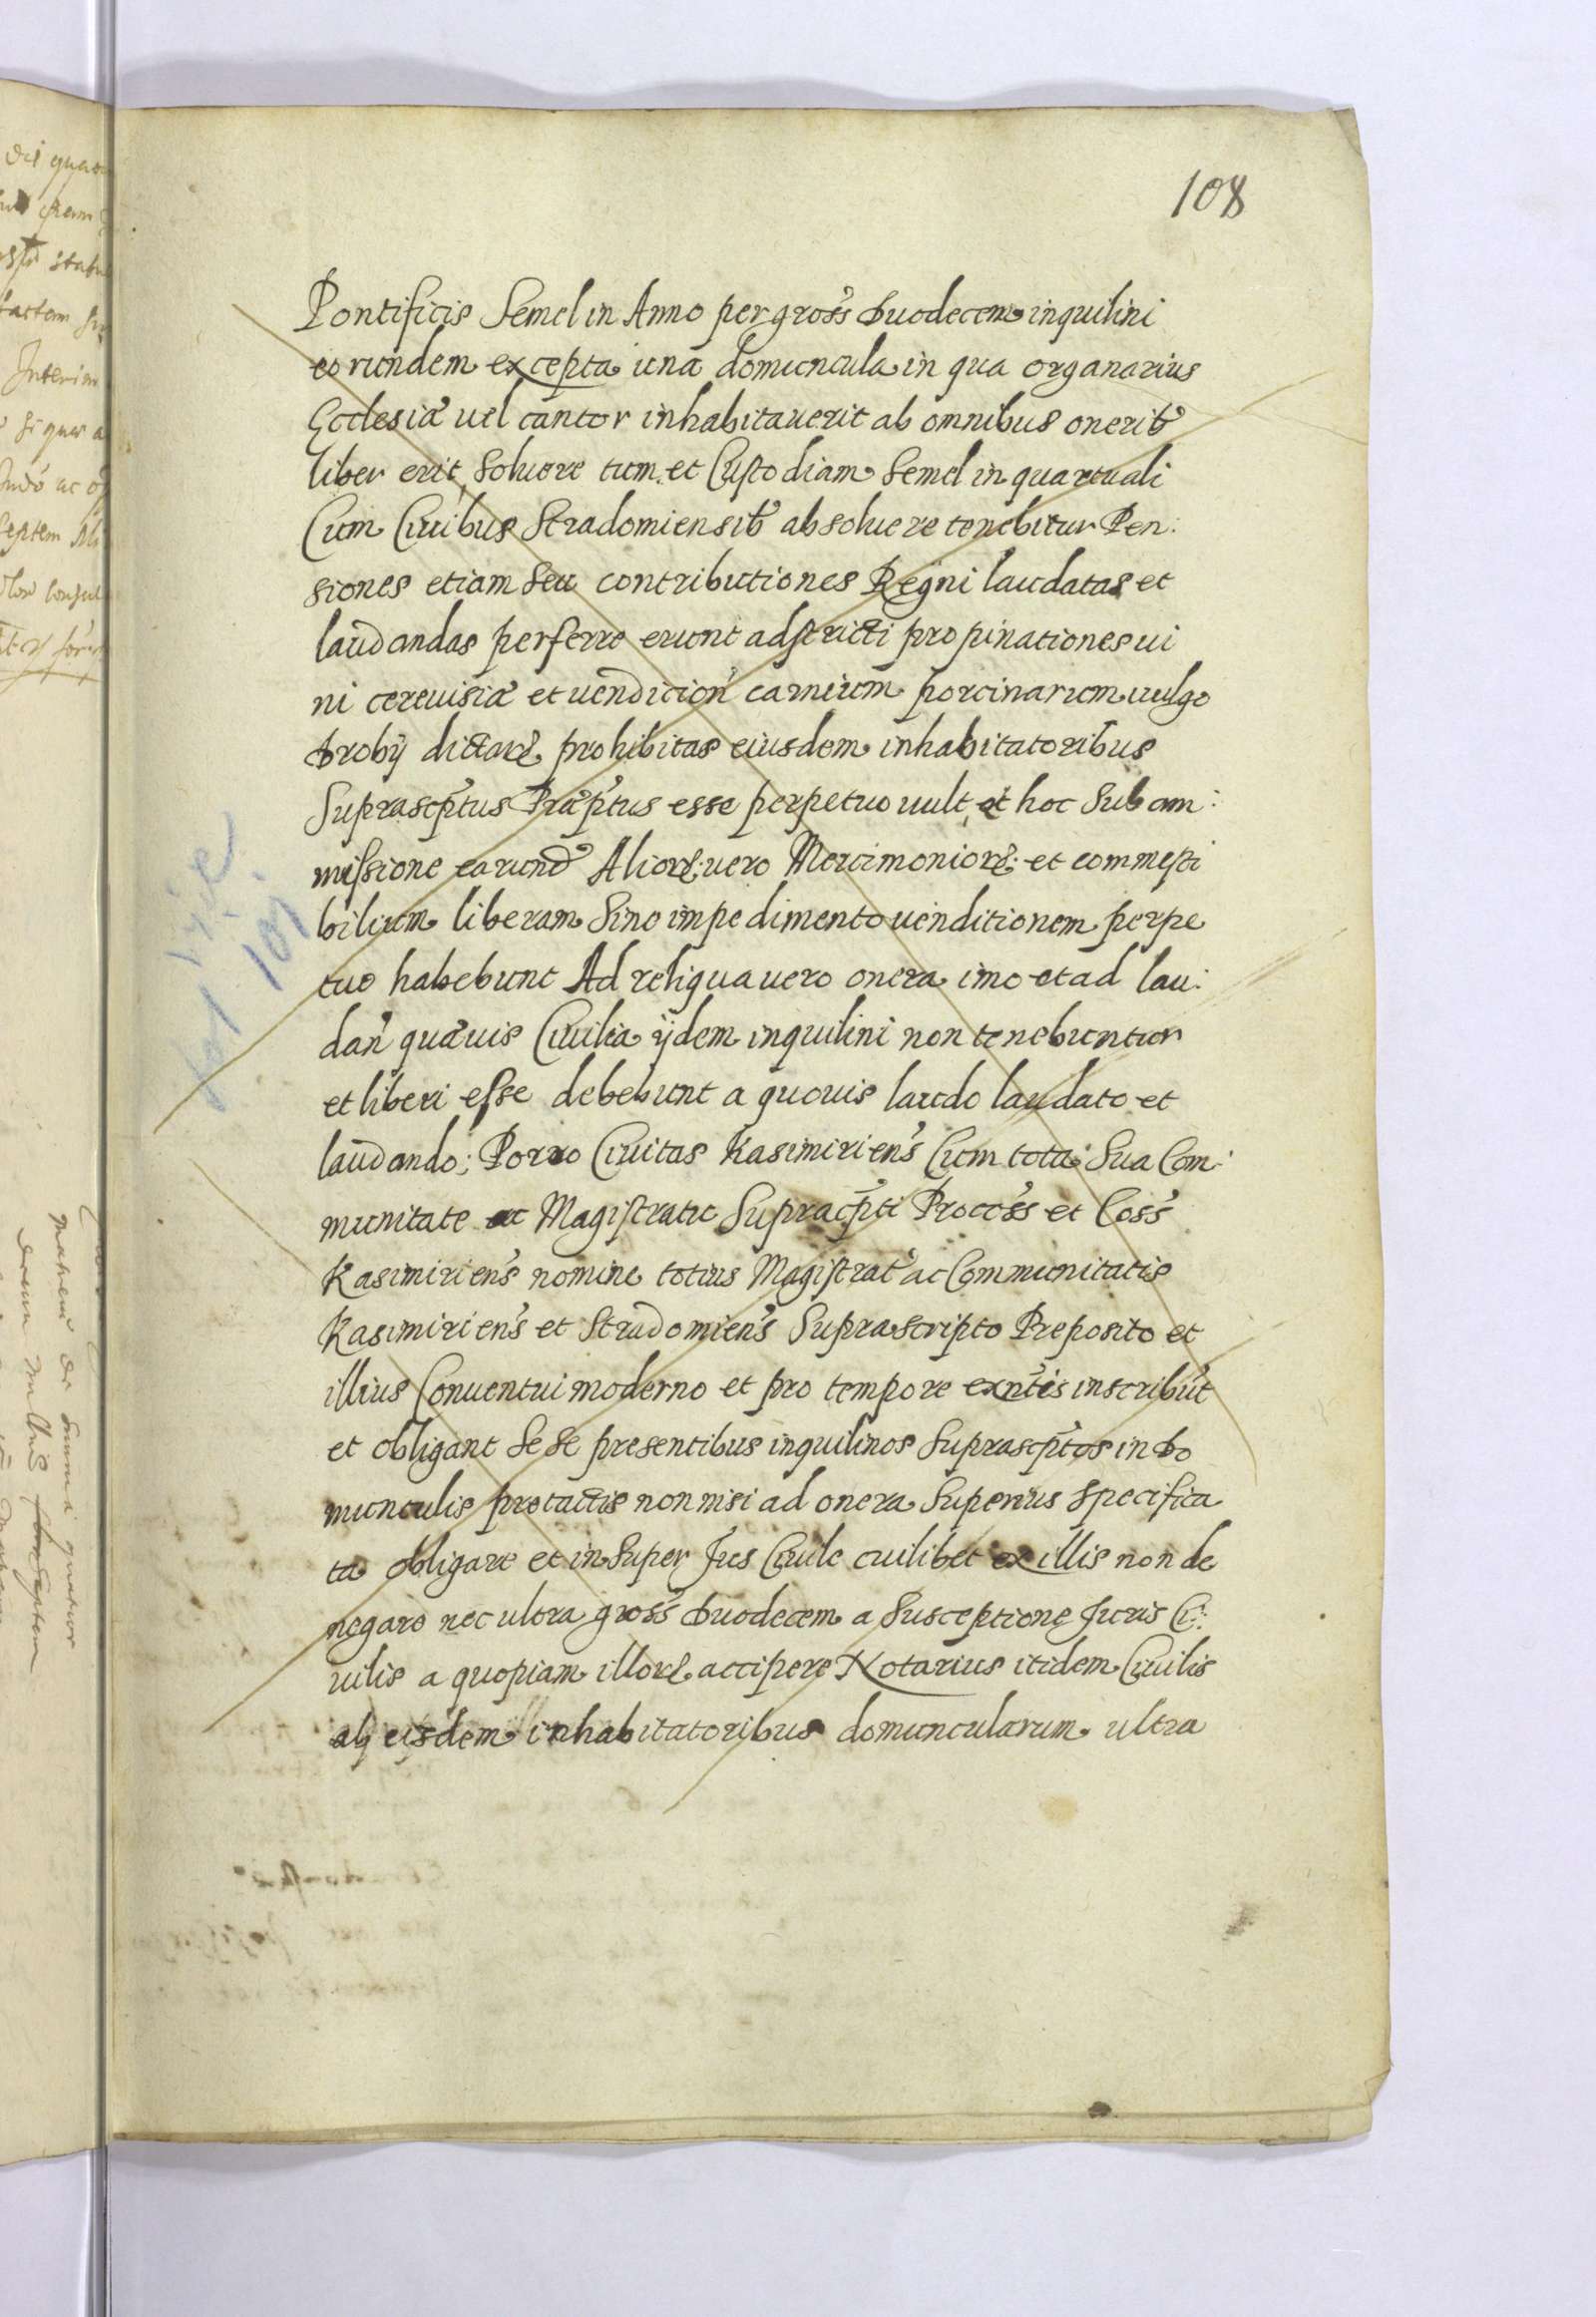 108
Pontificis Semel in Anno per gross̃ duodecem inquilini
eorundem excepta una domuncula in qua organarius
Ecclesiæ uel cantor inhabitauerit ab omnibus onerib9
liber erit, soluere tum et Custodiam Semel in quartuali
Cum Ciuibus Stradomiensib9 absoluere tenebitur Pen:
siones etiam seu contributiones Regni laudatas et
laudandas perferre erunt adstricti propinationes ui
ni cereuisiæ et uendition̄ carnium porcinarum uulgo
drobÿ dictarꝫ prohibitas eiusdem inhabitatoribus
Suprascp̃tus Præp̃tus esse perpetuo uult, et hoc Sub am:
missione earund9 Aliorꝫ uero Mercimoniorꝫ et commesti
bilium liberam sine impedimento uenditionem perpe
tuo habebunt Ad reliqua uero onera imo et ad lau:
dan̄ quæuis Ciuilia ijdem inquilini non tenebuntur
et liberi esse debebunt a quouis laudo laudato et
laudando; Porro Ciuitas Kasimiriens̃ Cum tota Sua Com:
munitate ac Magistratu Supracp̃ti Procoss̃ et Coss̃
Kasimiriens̃ nomine totius Magistrat9 ac Communitatis
Kasimiriens̃ et Stradomiens̃ Suprascripto Preposito et
illius Conuentui moderno et pro tempore exñtis inscribũt
et obligant Se se presentibus inquilinos Suprascp̃tos in do
munculis pretactis non nisi ad onera Superius specifica
ta obligare et insuper Jus Ciuile cuilibet ex illis non de
negare nec ultra gross̃ duodecem a Susceptione Juris Ci:
uilis a quopiam illorꝫ accipere Notarius itidem Ciuilis
ab eisdem inhabitatoribus domuncularum ultra